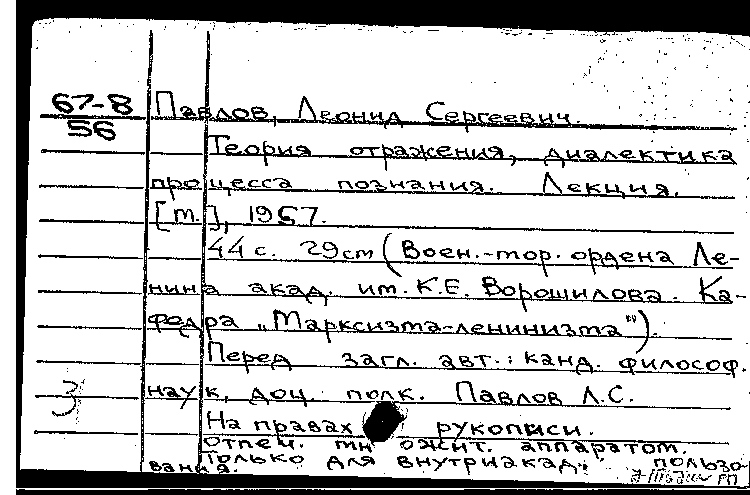 67-8
56
Павлов, Леонид Сергеевич.
Теория отражения, диалектика
процесса познания. Лекция.
[m.], 1967.
44 с. 29 см (Воен.-мор. ордена Ле-
нина акад. им. К.Е. Ворошилова. Ка-
федра „Марксизма-ленинизма").
Перед загл. авт.: канд. философ.
наук, доц. полк. Павлов Л.С.
3
На правах рукописи.
Отпеч. множит. аппаратом.
Только для внутриакад. пользо
вания.